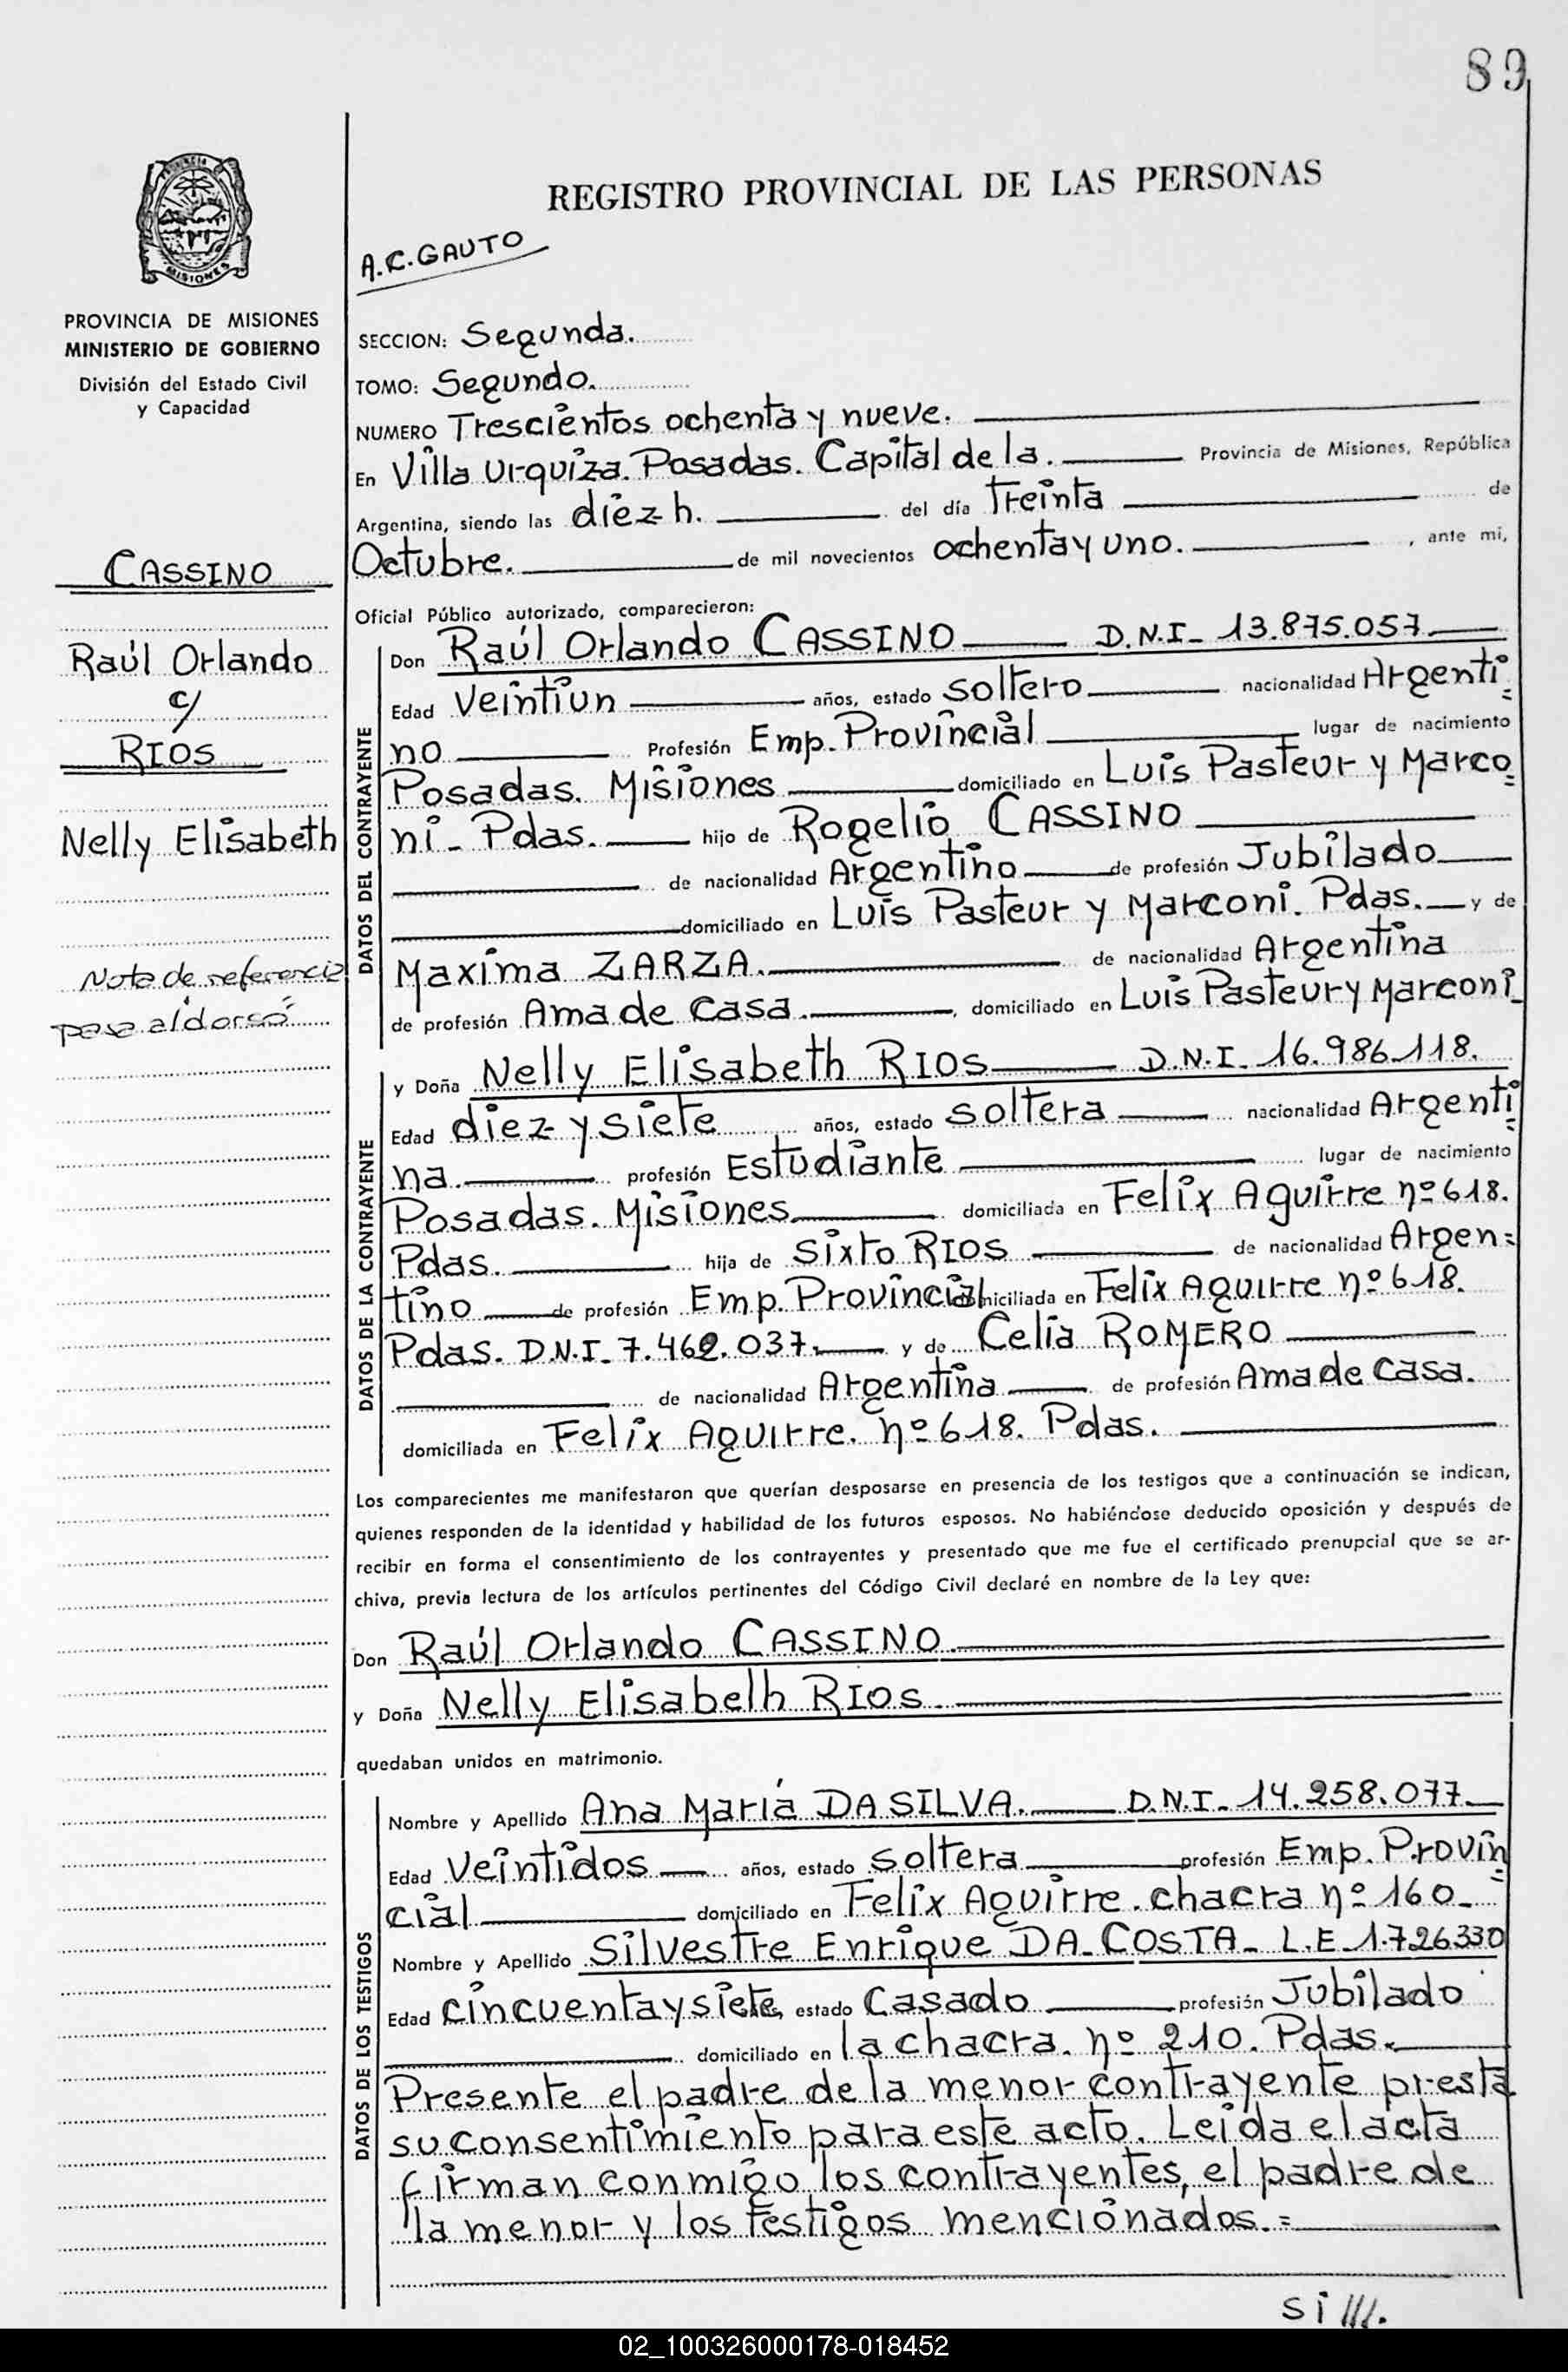 89
REGISTRO PROVINCIAL DE LAS PERSONAS
A.C. GAUTO
MISIONES
PROVINCIA DE MISIONES
MINISTERIO DE GOBIERNO
División del Estado Civil
y Capacidad
SECCION: Segunda.
TOMO: Segundo.
NUMERO Trescientos ochenta y nueve.
En Villa Urquiza. Posadas. Capital de la. Provincia de Misiones, República
Argentina, siendo las diez h. del día Treinta de
Octubre. de mil novecientos ochenta y uno. , ante mi,
Oficial Público autorizado, comparecieron:
CASSINO
Raúl Orlando
c/
RIOS
Nelly Elisabeth
Nota de referencia
pasa al dorso
DATOS DEL CONTRAYENTE
Don Raúl Orlando CASSINO D.N.I- 13.875.057.
Edad Veintiun años, estado soltero nacionalidad Argenti=
no Profesión Emp. Provincial lugar de nacimiento
Posadas. Misiones domiciliado en Luis Pasteur y Marco=
ni- Pdas. hijo de Rogelio CASSINO
de nacionalidad Argentino de profesión Jubilado
domiciliado en Luis Pasteur y Marconi. Pdas. y de
Maxima ZARZA. de nacionalidad Argentina
de profesión Ama de Casa. , domiciliado en Luis Pasteur y Marconi-
DATOS DE LA CONTRAYENTE
y Doña Nelly Elisabeth RIOS D.N.I. 16.986.118.
Edad diez y siete años, estado soltera nacionalidad Argenti=
na. profesión Estudiante lugar de nacimiento
Posadas. Misiones domiciliada en Felix Aguirre nº 618.
Pdas. hija de Sixto RIOS de nacionalidad Argen=
tino de profesión Emp. Provincial domiciliada en Felix Aguirre nº 618.
Pdas. D.N.I- 7.462.037. y de Celia ROMERO
de nacionalidad Argentina de profesión Ama de Casa.
domiciliada en Felix Aguirre. nº 618. Pdas.
Los comparecientes me manifestaron que querían desposarse en presencia de los testigos que a continuación se indican,
quienes responden de la identidad y habilidad de los futuros esposos. No habiéndose deducido oposición y después de
recibir en forma el consentimiento de los contrayentes y presentado que me fue el certificado prenupcial que se ar-
chiva, previa lectura de los artículos pertinentes del Código Civil declaré en nombre de la Ley que:
Don Raúl Orlando CASSINO.
y Doña Nelly Elisabelh RIOS.
quedaban unidos en matrimonio.
DATOS DE LOS TESTIGOS
Nombre y Apellido Ana María DA SILVA. D.N.I- 14.258.077.
Edad Veintidos años, estado soltera profesión Emp. Provin=
cial domiciliado en Felix Aguirre. chacra nº 160-
Nombre y Apellido Silvestre Enrique DA-COSTA- L.E 1.726.330
Edad cincuenta y siete, estado Casado profesión Jubilado
domiciliado en la chacra. nº 210. Pdas.
Presente el padre de la menor contrayente presta
su consentimiento para este acto. Leida el acta
firman conmigo los contrayentes, el padre de
la menor y los testigos mencionados.=
si///.
02_100326000178-018452